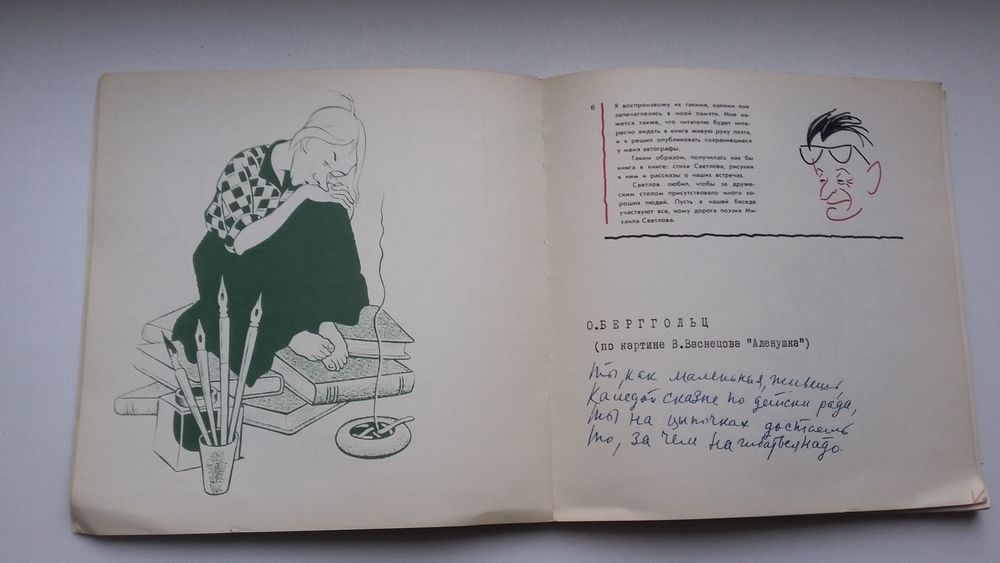 6
Я воспроизвожу их такими, какими они
запечатлелись в моей памяти. Мне ка-
жется также, что читателю будет инте-
ресно видеть в книге живую руку поэта,
и я решил опубликовать сохранившиеся
у меня автографы.
Таким образом, получилась как бы
книга в книге: стихи Светлова, рисунки
к ним и рассказы о наших встречах.
Светлов любил, чтобы за друже-
ским столом присутствовало много хо-
роших людей. Пусть в нашей беседе
участвуют все, кому дорога поэзия Ми-
хаила Светлова.
О.БЕРГГОЛЬЦ
(по картине В.Васнецова "Аленушка")
Ты, как маленькая, живешь,
Каждой сказке по детски рада,
Ты на цыпочках достаешь
То, за чем нагибаться надо.